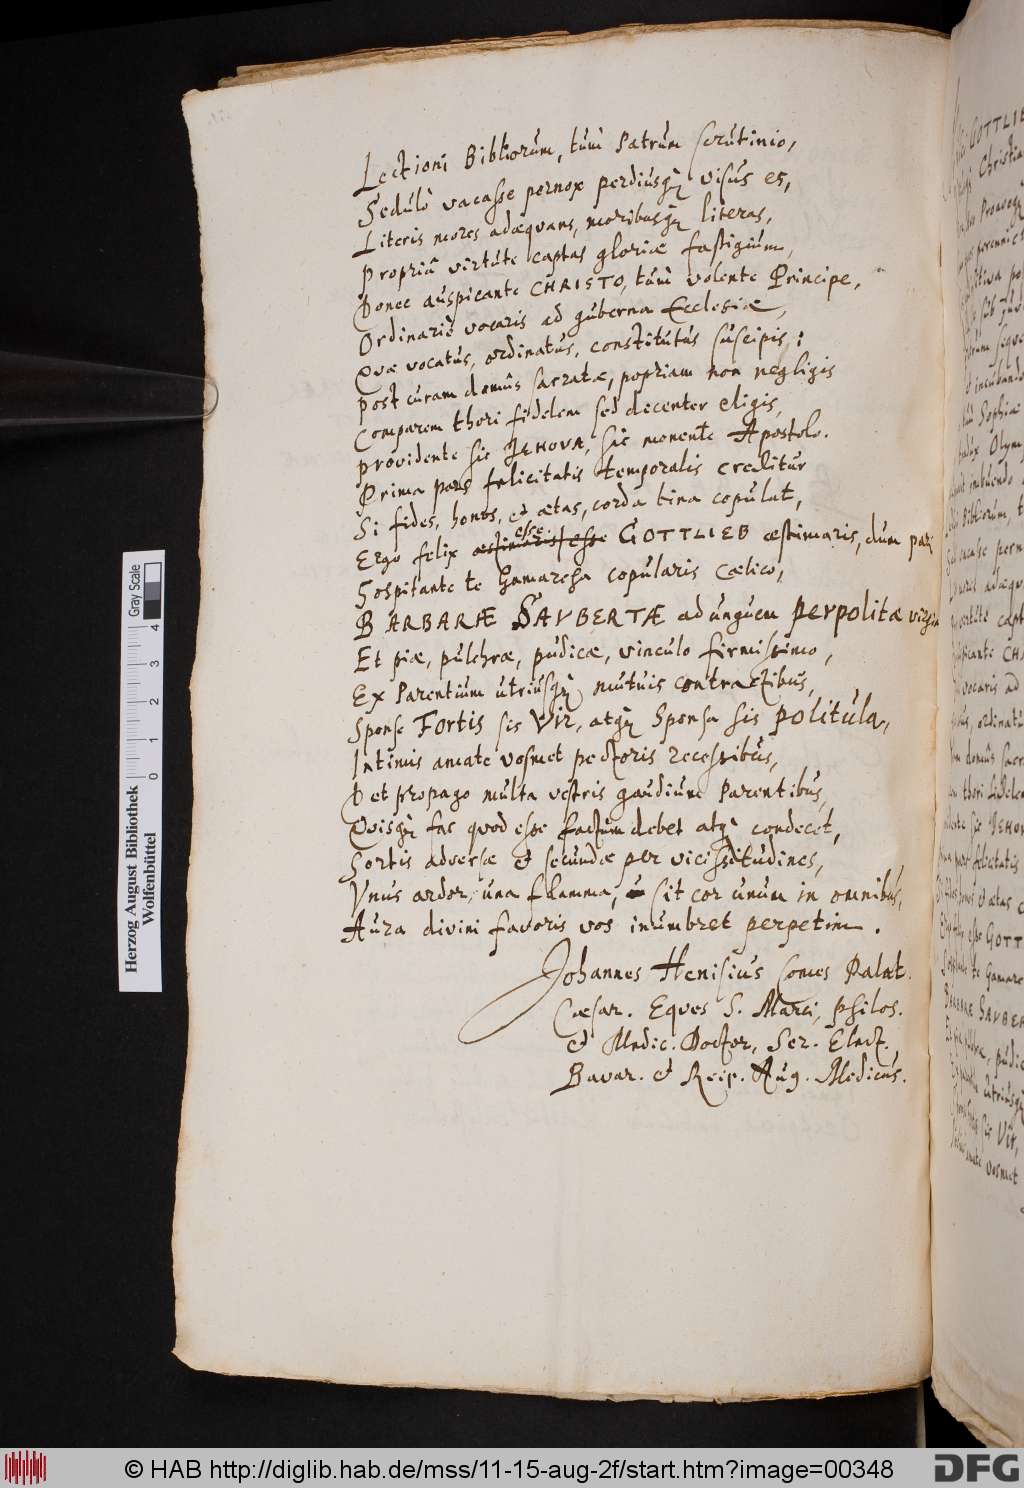 Lectioni Bibliorum, tum Patrum scrutinio,
Sedulò vacasse pernox perdiusq; visus es,
Literis mores adæquans, moribusq; literas,
Propriâ virtute captas gloriæ fastigium,
Donec auspicante CHRISTO, tum volente Principe,
Ordinariè vocaris ad guberna Ecclesiæ,
Quæ vocatus, ordinatus, constitutus suscipis;
Post curam domûs sacratæ, popriam non negligis
Comparem thori fidelem sed decenter eligis,
Providente sic JEHOVA, sic monente Apostolo.
Prima pars felicitatis temporalis creditur
Si fides, honos, et ætas, corda bina copulat,
esse
Ergo felix æstimaris esse GOTTLIEB æstimaris, dum pari
Sospitante te Gamarcha copularis cælico,
BARBARÆ SAVBERTÆ ad unguem perpolitæ virgini
Et piæ, pulchræ, pudicæ, vinculo firmissimo,
Ex Parentium utriusq; mutuis contractibus,
Sponse Fortis sis Vir, atq; Sponsa sis politula,
Intimis amate vosmet pectoris recessibus,
Det propago multa vestris gaudium Parentibus,
Quisq; fas quod esse factum debet atq; condecet,
Sortis adversæ et secundæ per vicissitudines,
Vnus ardor, una flamma, sit cor unum in omnibus,
Aura divini favoris vos inumbret perpetim.
Johannes Henisius Comes Palat.
Cæsar. Eques S. Marci, Philos.
et Medic. Doctor, Ser. Elect.
Bavar. et Reip. Aug. Medicus.
Gray Scale
0 1 2 3 4
Herzog August Bibliothek
Wolfenbüttel
© HAB http://diglib.hab.de/mss/11-15-aug-2f/start.htm?image=00348
DFG